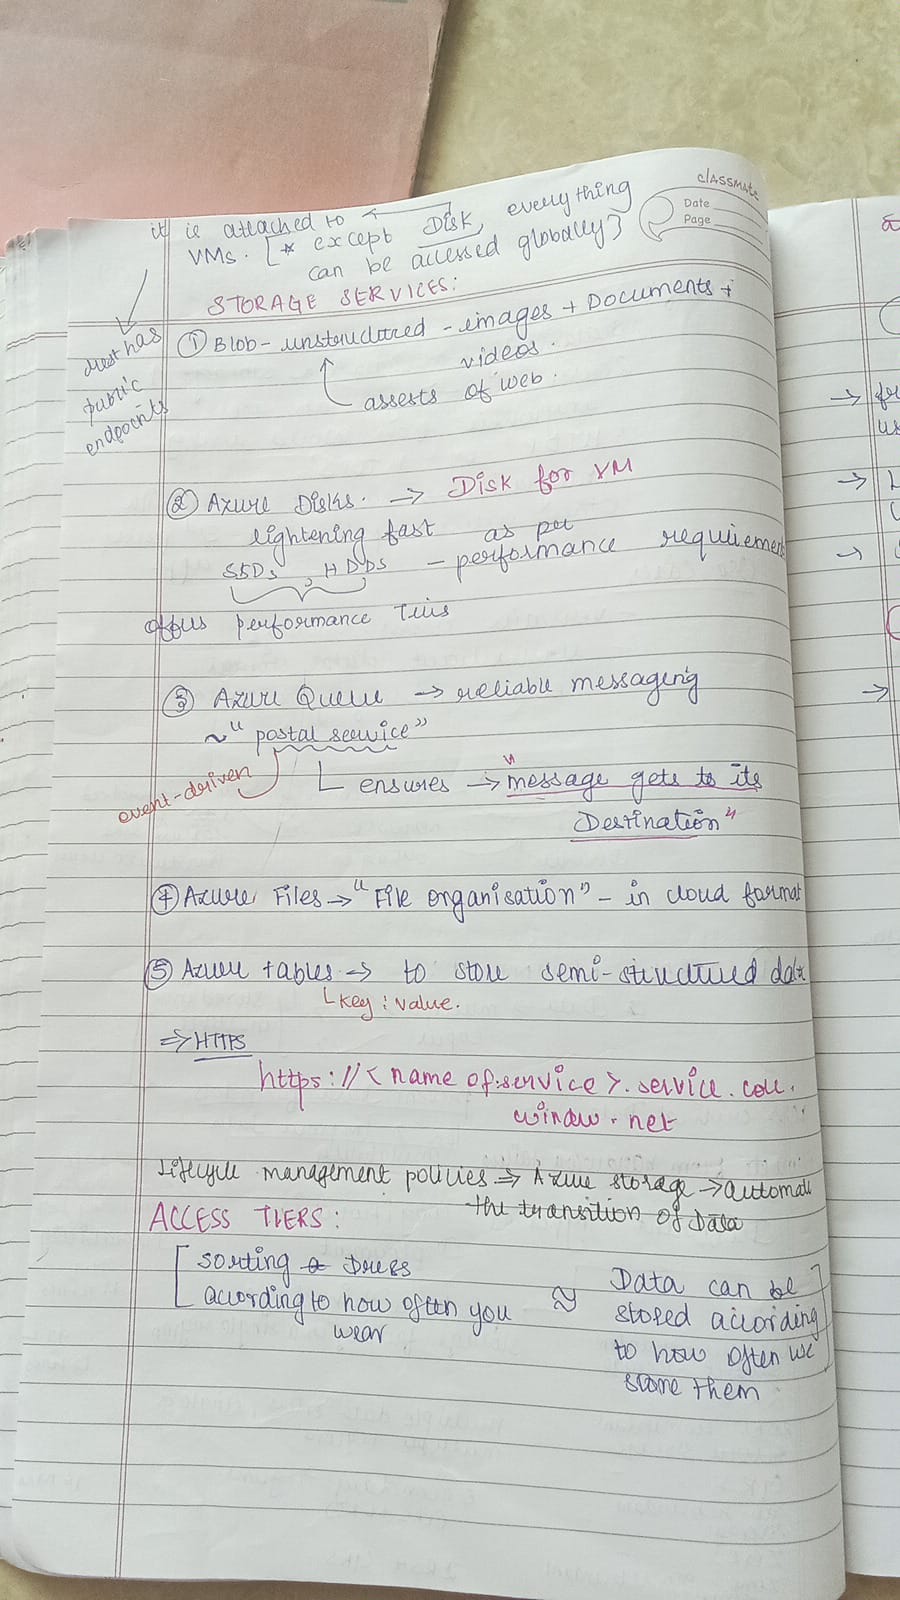 classmate
Date
Page
it is attached to
VMs. [* except Disk, everything
can be accessed globally]
must has
public
endpoints
STORAGE SERVICES:
① Blob - unstructured - images + Documents +
videos.
assests of web.
② Azure Disks. → Disk for VM
lightening fast as per
SSDs, HDDs - performance requirement
offers performance Tiers
③ Azure Queue → reliable messaging
~ "postal service"
event-driven
ensures → "message gets to its
Destination"
④ Azure Files → "File organisation" - in cloud format
⑤ Azure tables → to store semi-structured data
key : value.
⇒ HTTPS
https://<name of service>.service.core.
window.net
Lifecycle management policies ⇒ Azure storage → automate
the transition of Data
ACCESS TIERS:
[sorting Dress
according to how often you
wear
≈
Data can be
stored according
to how often we
store them]